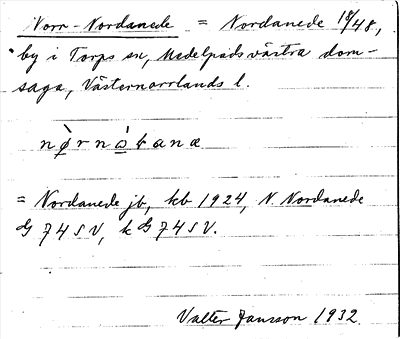 Norr-Nordanede = Nordanede 18/48,
by i Torps sn, Medelpads västra dom-
saga, Västernorrlands l.
nø̀rnå̀tanæ
= Nordanede jb, kb 1924, N. Nordanede
G 74 SV, k G 74 SV.
Valter Jansson 1932.